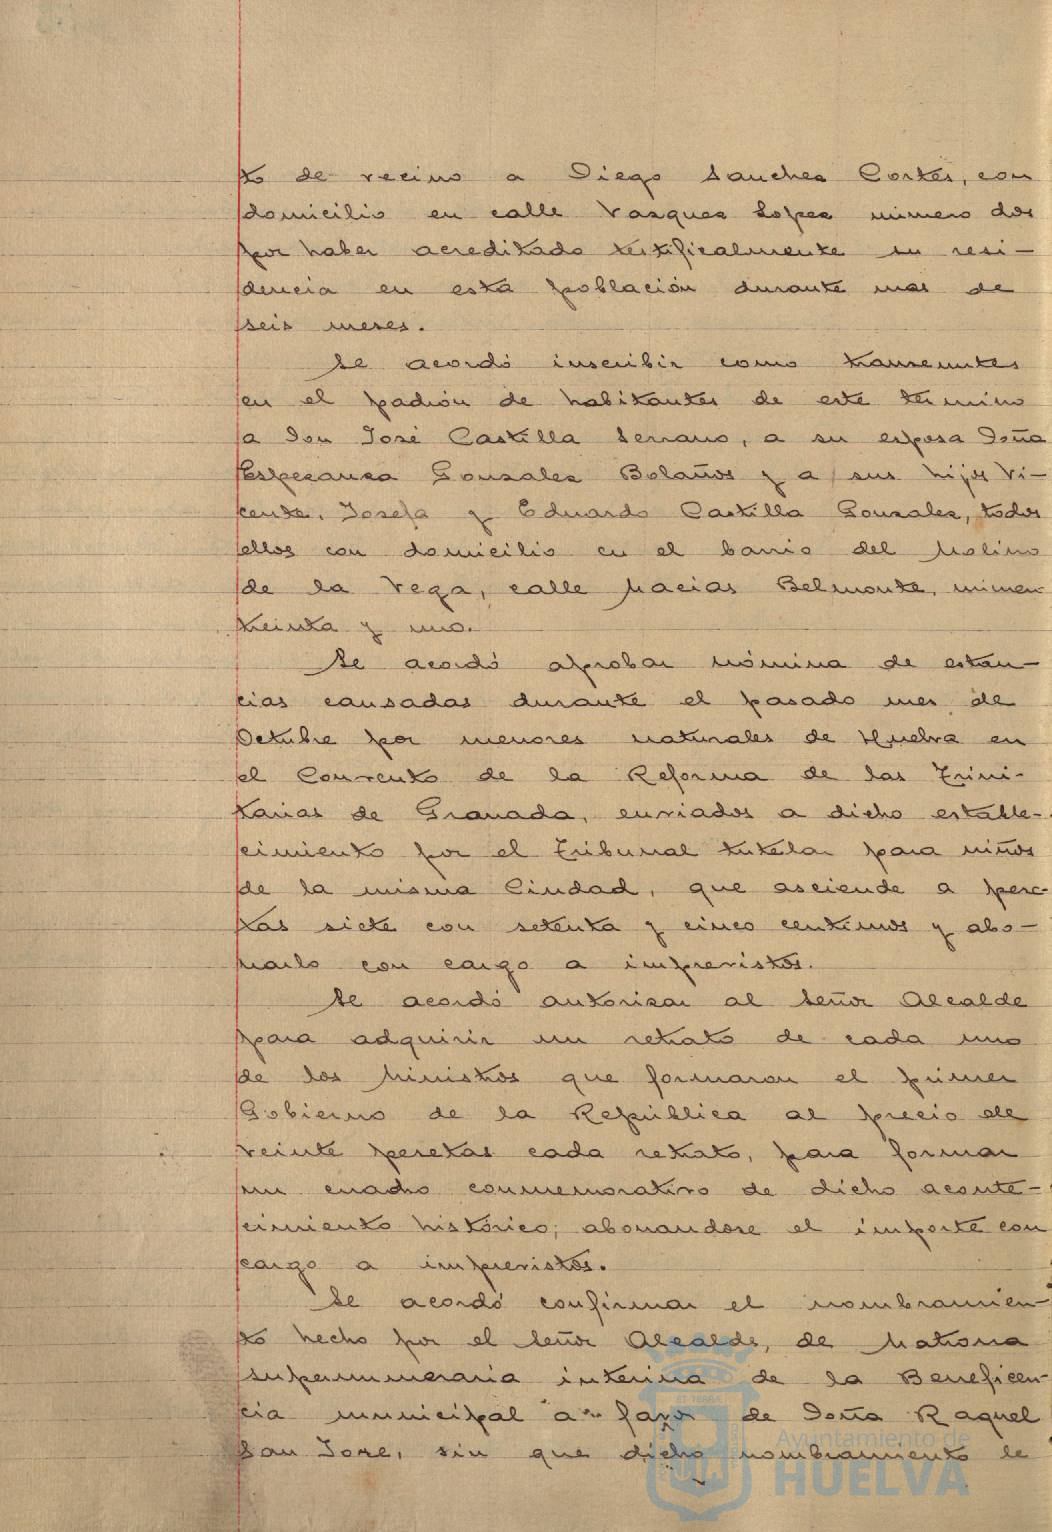 to de vecino a Diego Sanchez Cortés, con
domicilio en calle Vazquez Lopez número dos
por haber acreditado testificalmente su resi-
dencia en esta población durante mas de
seis meses.
Se acordó inscribir como transeuntes
en el padrón de habitantes de este término
a Don José Castilla Serrano, a su esposa Doña
Esperanza Gonzalez Bolaños y a sus hijos Vi-
cente, Josefa y Eduardo Castilla Gonzalez, todos
ellos con domicilio en el barrio del Molino
de la Vega, calle Macias Belmonte, número
treinta y uno.
Se acordó aprobar nómina de estan-
cias causadas durante el pasado mes de
Octubre por menores naturales de Huelva en
el Convento de la Reforma de las Trini-
tarias de Granada, enviados a dicho estable-
cimiento por el Tribunal tutelar para niños
de la misma Ciudad, que asciende a pese-
tas siete con setenta y cinco centimos y abo-
narlo con cargo a imprevistos.
Se acordó autorizar al Señor Alcalde
para adquirir un retrato de cada uno
de los Ministros que formaron el primer
Gobierno de la República al precio de
veinte pesetas cada retrato, para formar
un cuadro conmemorativo de dicho aconte-
cimiento histórico; abonandose el importe con
cargo a imprevistos.
Se acordó confirmar el nombramien-
to hecho por el Señor Alcalde, de Matrona
supernumeraria interina de la Beneficen-
cia municipal a favor de Doña Raquel
San Jose, sin que dicho nombramiento le
Ayuntamiento de
HUELVA